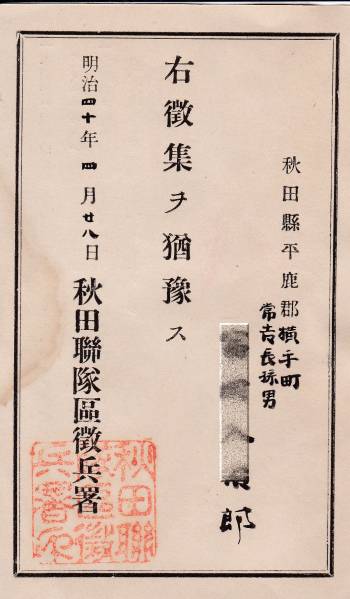 秋田縣平鹿郡橫手町
常吉長孫男
郎
右徵集ヲ猶豫ス
明治四十年四月廿八日
秋田聯隊區徵兵署
秋田聯
隊區徵
兵署印